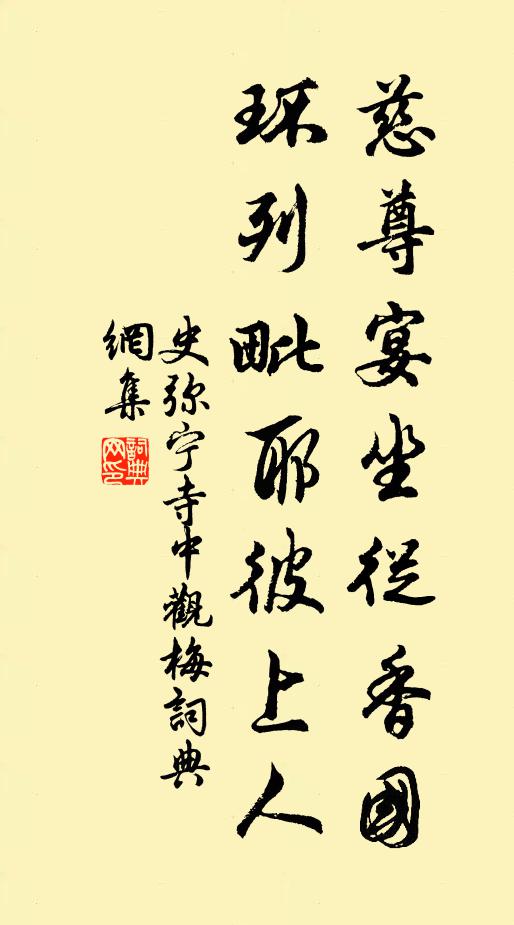 慈尊宴坐從香國
环列毗耶彼上人
史弥宁寺中觀梅詞典
網集
詞典
网印